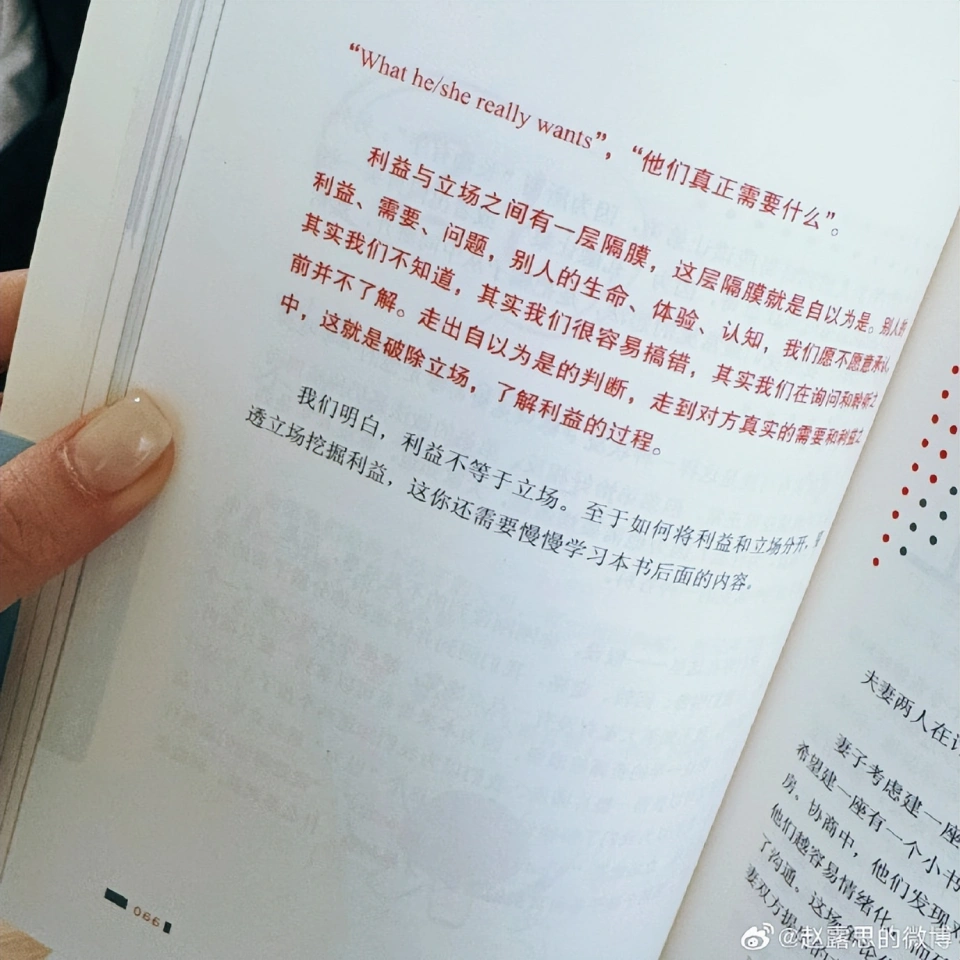 “What he/she really wants”，“他们真正需要什么”。
利益与立场之间有一层隔膜，这层隔膜就是自以为是。别人的
利益、需要、问题，别人的生命、体验、认知，我们愿不愿意承认，
其实我们不知道，其实我们很容易搞错，其实我们在询问和聆听之
前并不了解。走出自以为是的判断，走到对方真实的需要和利益之
中，这就是破除立场，了解利益的过程。
我们明白，利益不等于立场。至于如何将利益和立场分开，
透立场挖掘利益，这你还需要慢慢学习本书后面的内容。
066
夫妻两人在
妻子考虑建一座
希望建一座有一个小书
房。协商中，他们发现
他们越容易情绪化，
了沟通。这场
妻双方
@赵露思的微博